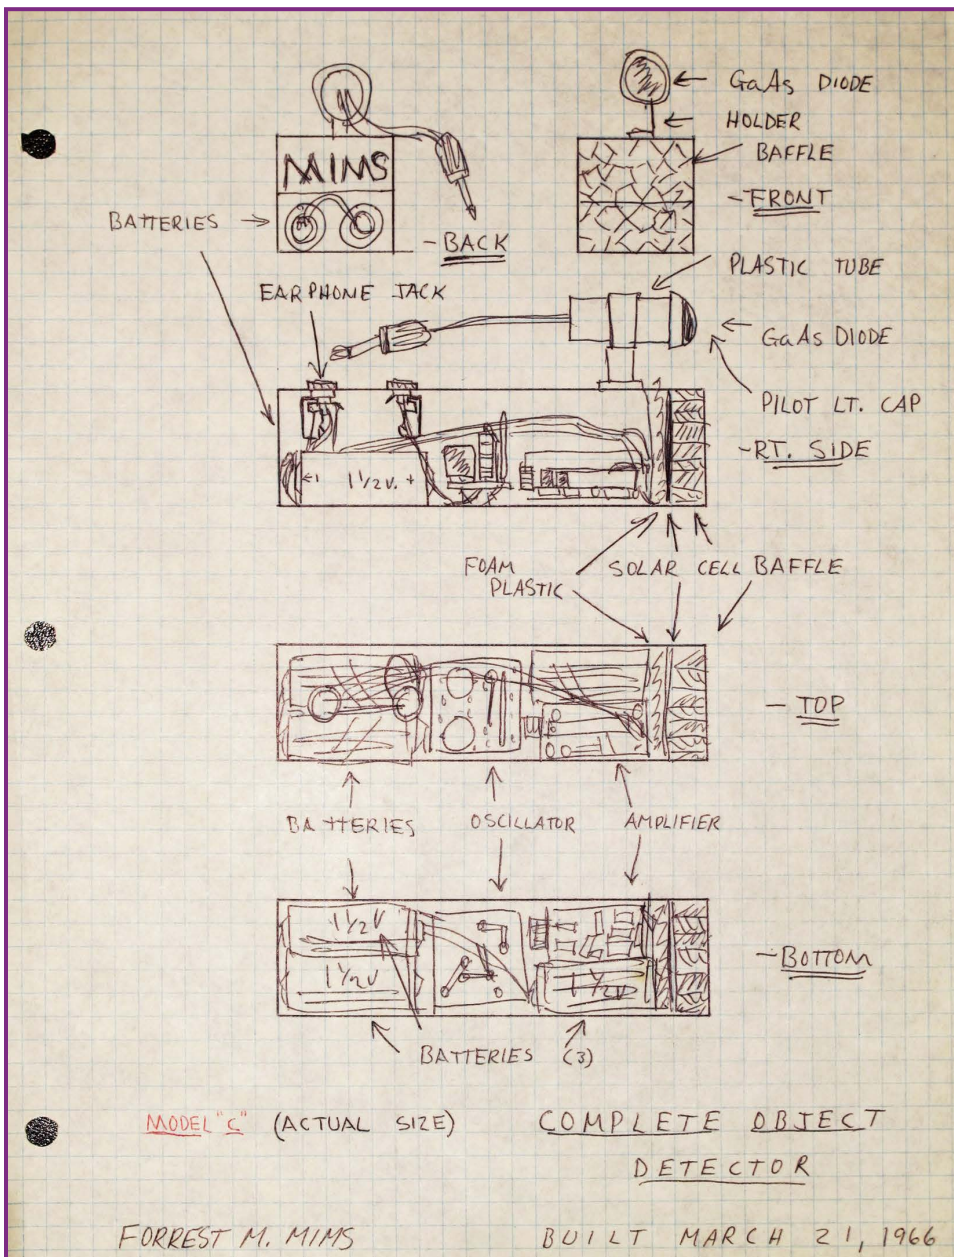 GaAs DIODE
HOLDER
BAFFLE
MIMS
- FRONT
BATTERIES
- BACK
PLASTIC TUBE
EARPHONE JACK
GaAs DIODE
PILOT LT. CAP
- RT. SIDE
1 1/2 V. +
FOAM PLASTIC
SOLAR CELL
BAFFLE
- TOP
BATTERIES
OSCILLATOR
AMPLIFIER
1 1/2 V
1 1/2 V
1 1/2 V
- BOTTOM
BATTERIES (3)
MODEL "C" (ACTUAL SIZE)
COMPLETE OBJECT
DETECTOR
FORREST M. MIMS
BUILT MARCH 21, 1966